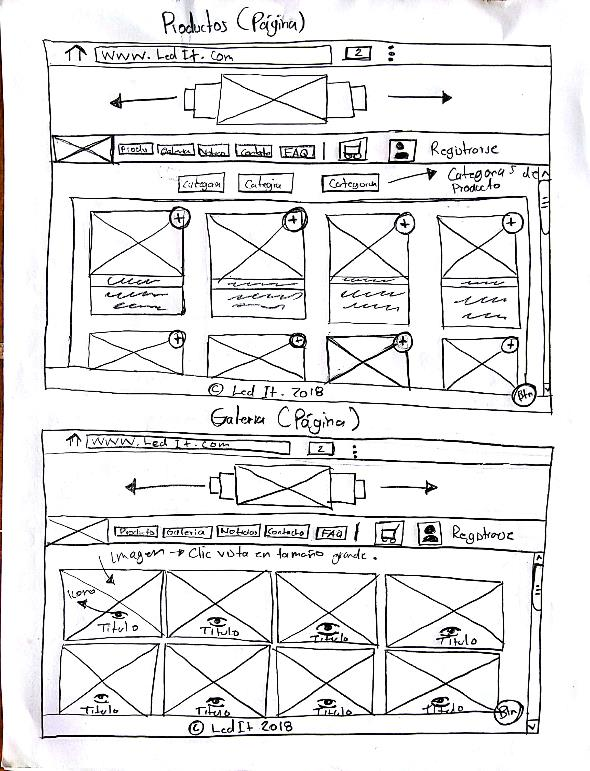 Productos (Página)
www.Led It.com
2
Produ Galeria Noticia Contato FAQ | Registrarse
Categori Categia Categoria → Categorias de
Producto
+ + + +
+ + + +
© Led It. 2018
Btn
Galeria (Página)
www.Led It.com
2
Producto Galeria Noticias Contacto FAQ | Registrarse
Imagen → Clic vista en tamaño grande.
Icono
Titulo Titulo Titulo Titulo
Titulo Titulo Titulo Titulo
Btn
© Led It 2018